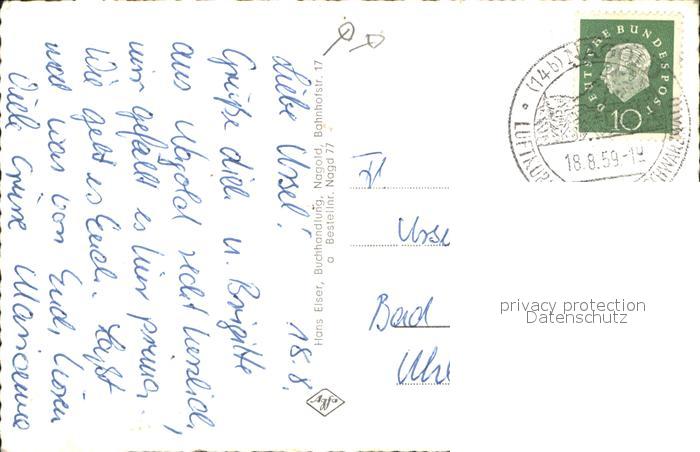 18.8.
Liebe Ursel!
Grüße dich u. Brigitte
aus Nagold recht herzlich,
mir gefällt es hier prima.
Wie geht es Euch. Laßt
mal was von Euch hören
Viele Grüße Marianne
Hans Elser, Buchhandlung, Nagold, Bahnhofstr. 17
o Bestellnr. Nagd 77
Agfa
Frl
Urse
Bad
DEUTSCHE BUNDESPOST
10
(14b)
18.8.59-19
LUFTKUR
SCHWARZWALD
privacy protection
Datenschutz